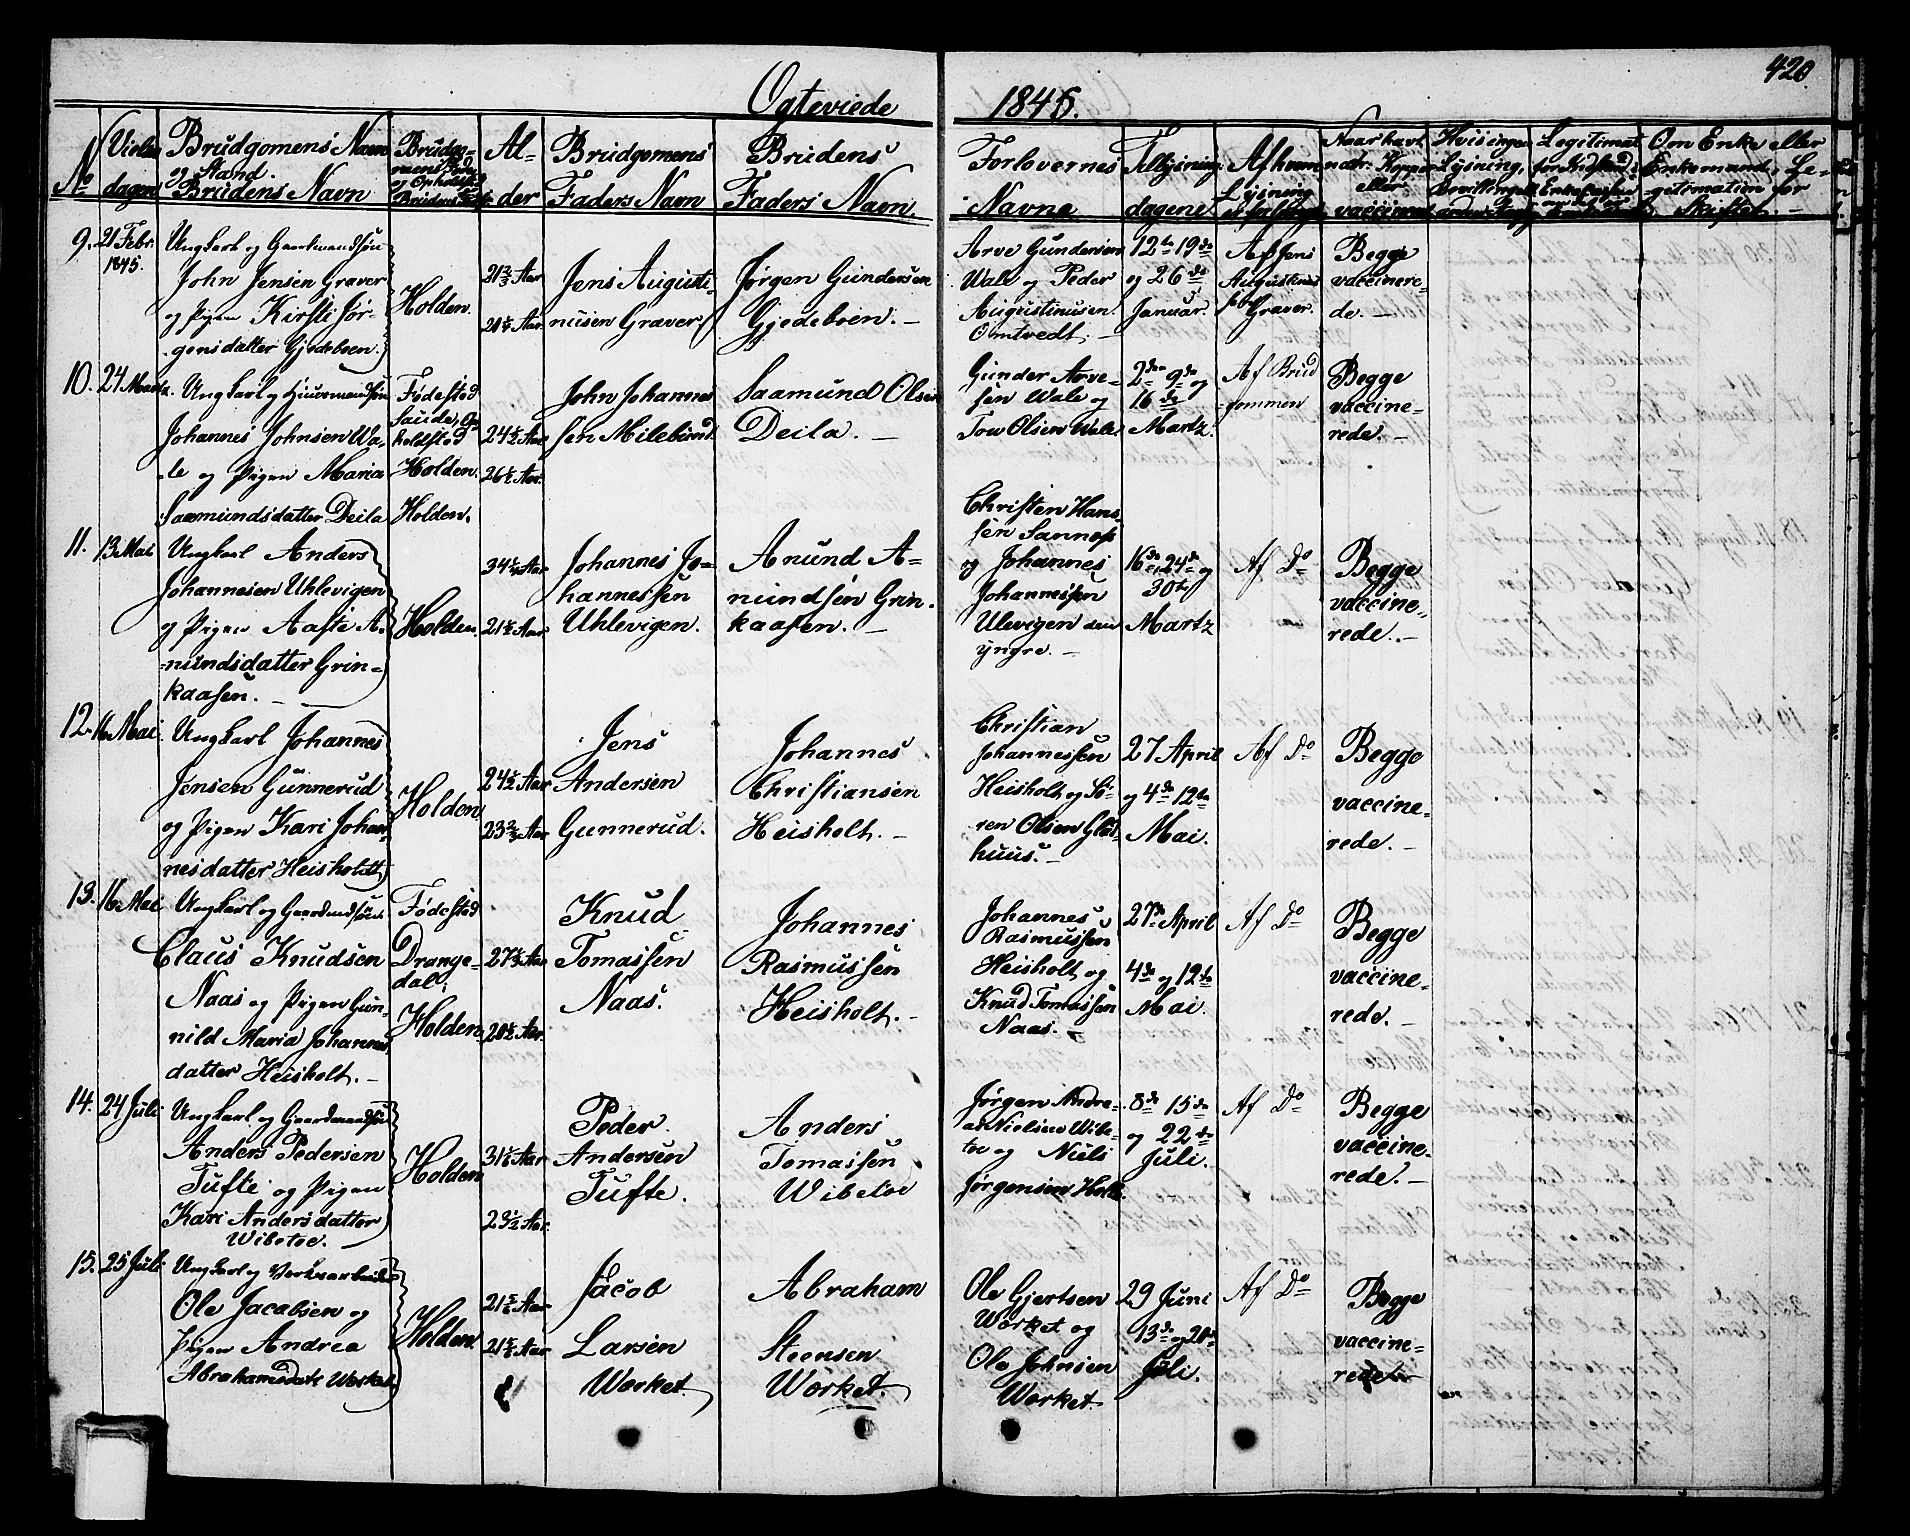 420
Ægteviede 1845.
No
Vielses
dagen
Brudgomens Navn
og Stand.
Brudens Navn
Brudgo-
mens Føde
og Opholdssted
Al-
der
Brudgomens
Faders Navn
Brudens
Faders Navn.
Forlovernes
Navne
Tillysnings
dagene
Af hvem
Lysning
er forlangt
Naar havt
natr. Kopper
eller
vaccineret
Hvis ingen
Lysning,
Bevillingens
Legitimat.
for
Om Enke eller
Enkemand, Le-
gitimation for
Skiftet. –
9. 21 Febr.
1845.
Ungkarl og Gaardmandssøn
John Jensen Graver
og Pigen Kirsti Jør-
gensdatter Gjedeboen.
Holden.
21 3/4 Aar
21 1/4 Aar.
Jens Augusti-
nusen Graver
Jørgen Gundersen
Gjedeboen. –
Arve Gundersen
Wale og Peder
Augustinusen
Omtvedt. –
12te 19de
og 26de
Januar.
Af Jens
Augustinus
sen Graver.
Begge
vaccinere-
de. –
10. 24 Martz.
Ungkarl og Huusmandssøn
Johannes Johnsen Wa-
le og Pigen Maria
Saamundsdatter Deila
Fødested
Saude, Op-
holdsted
Holden.
Holden.
24 1/2 Aar
26 1/2 Aar.
John Johannes
sen Milebund.
Saamund Olsen
Deila. –
Gunder Arve-
sen Wale og
Tow Olsen Wale
2den 9de og
16de
Martz.
Af Brud
gommen
Begge
vaccine-
rede. –
11. 13 Mai
Ungkarl Anders
Johannesen Uhlevigen
og Pigen Aaste A-
nundsdatter Grin-
kaasen. –
Holden.
34 1/4 Aar
21 1/2 Aar
Johannes Jo-
hannessen
Uhlevigen.
Anund A-
nundsen Grin-
kaasen. –
Christen Hans
sen Sannes
og Johannes
Johannessen
Ulevigen den
yngre. –
16de, 24de og
30te
Martz
Af Do
Begge
vaccine-
rede. –
12. 16 Mai
Ungkarl Johannes
Jensen Gunnerud
og Pigen Kari Johan-
nesdatter Heisholtt
Holden
24 1/2 Aar
23 3/4 Aar
Jens
Andersen
Gunnerud.
Johannes
Christiansen
Heisholt. –
Christian
Johannessen
Heisholt og Sö-
ren Olsen
huus. –
27 April
og 4de 12te
Mai.
Af Do
Begge
vaccine-
rede. –
13. 16 Mai
Ungkarl og Gaardmdssøn
Claus Knudsen
Naas og Pigen Gun-
nild Maria Johannes
datter Heisholt. –
Fødested
Drange-
dal,
Holden.
27 1/2 Aar
20 1/2 Aar.
Knud
Tomassen
Naas.
Johannes
Rasmussen
Heisholt. –
Johannes
Rasmussen
Heisholt og
Knud Tomassen
Naas. –
27de April
4de og 12te
Mai.
Af Do
Begge
vaccine-
rede. –
14. 24 Juli
Ungkarl og Gaardmandssøn
Anders Pedersen
Tufte og Pigen
Kari Andersdatter
Wibetoe.
Holden
31 1/2 Aar
23 1/2 Aar.
Peder
Andersen
Tufte.
Anders
Tomassen
Wibetoe
Jørgen Andre-
as Nielsen Wibe-
toe og Niels
Jørgensen Holte
8de 15de
og 22de
Juli.
Af Do
Begge
vaccine-
rede. –
15. 25 Juli
Ungkarl og Verksarbeider
Ole Jacobsen og
Pigen Andrea
Abrahamsdatt Wærket
Holden.
21 5/6 Aar
21 5/6 Aar
Jacob
Larsen
Wærket.
Abraham
Steensen
Wærket.
Ole Gjertsen
Wærket og
Ole Johnsen
Wærket.
29 Juni
13de og 20de
Juli.
Af Do
Begge
vaccine-
rede